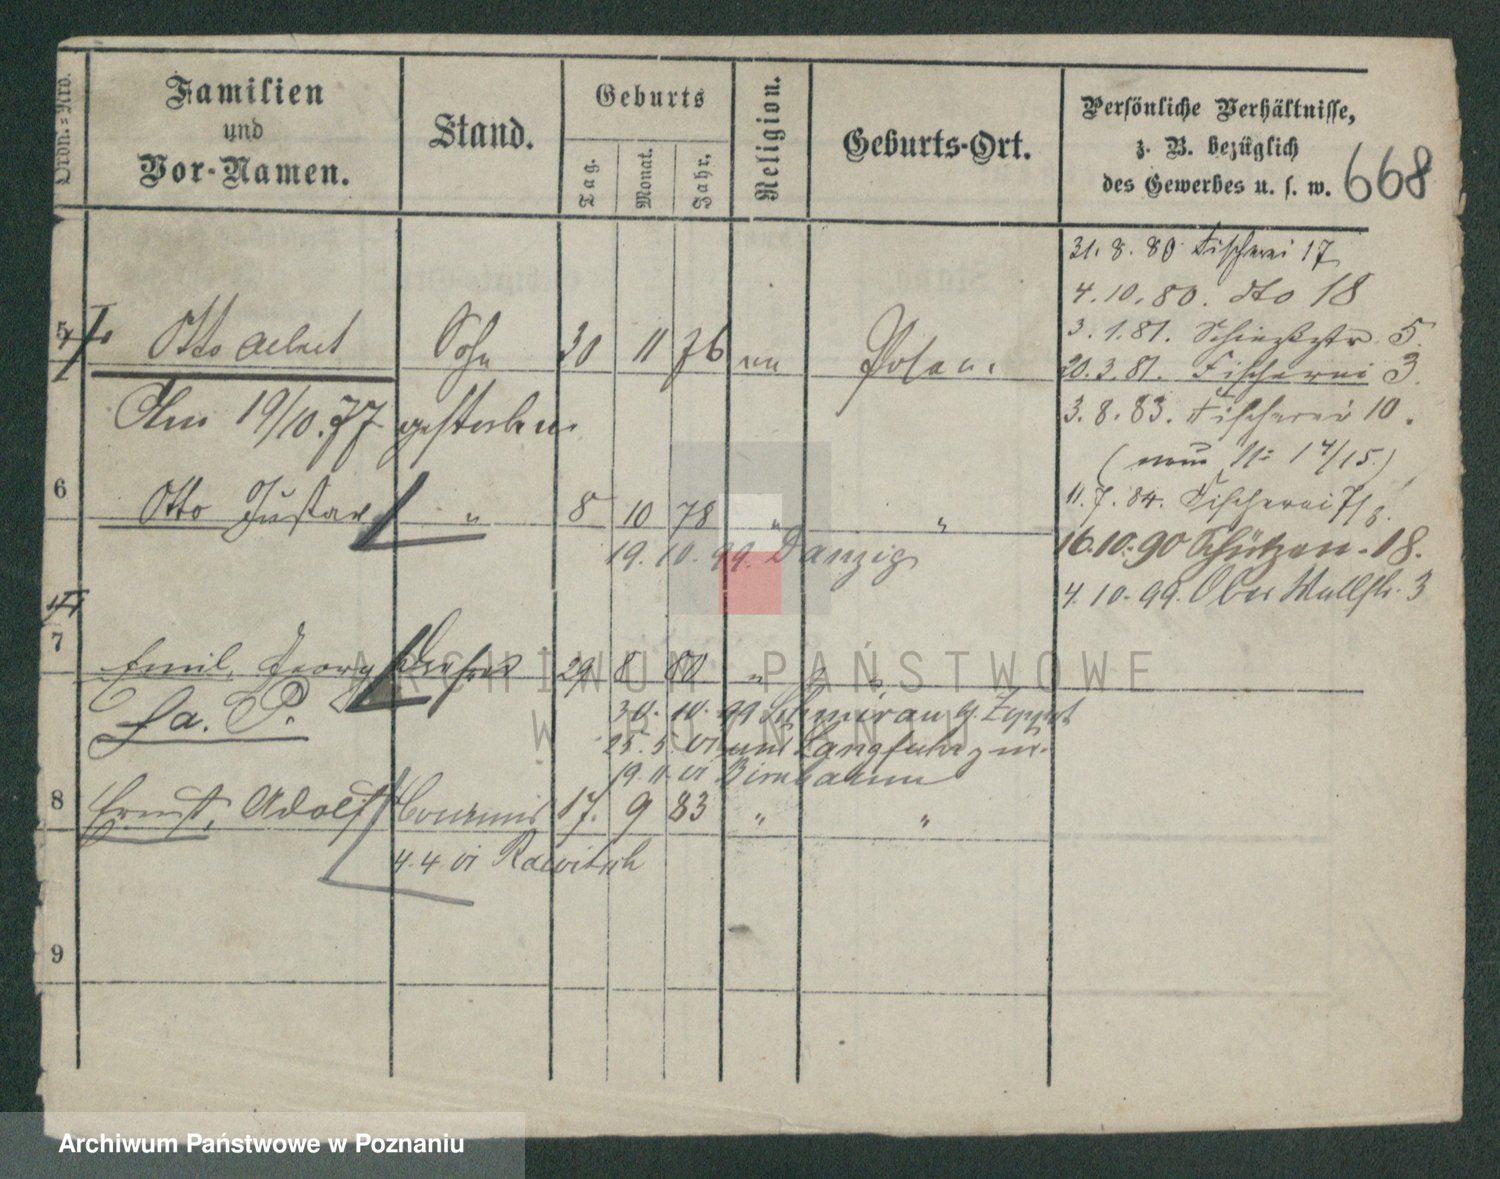 Ordn.=Nro.
Familien
und
Vor-Namen.
Stand.
Geburts
Tag.
Monat.
Jahr.
Religion.
Geburts-Ort.
Persönliche Verhältnisse,
z. B. bezüglich
des Gewerbes u. s. w.
668
31. 8. 80 Fischerei 17
4. 10. 80. dto 18
3. 1. 81. 5.
20. 3. 81. Fischerei 3.
3. 8. 83. Fischerei 10.
11. 7. 84. Fischerei
16.10.90 Schützen-18.
4. 10. 99. Ober Wallstr. 3
5 Otto Sohn 30 11 76 Posen.
Am 19/10.77 gestorben
6 Otto Gustav " 8 10 78 " "
19. 10. 99. Danzig
7 Emil, Georg 29 8 80 "
30. 10. 99
19. 11. 01 Birnbaum
8 Ernst, Adolf 17. 9 83 " "
4. 4. 01 Rawitsch
9
ARCHIWUM PAŃSTWOWE
W POZNANIU
Archiwum Państwowe w Poznaniu